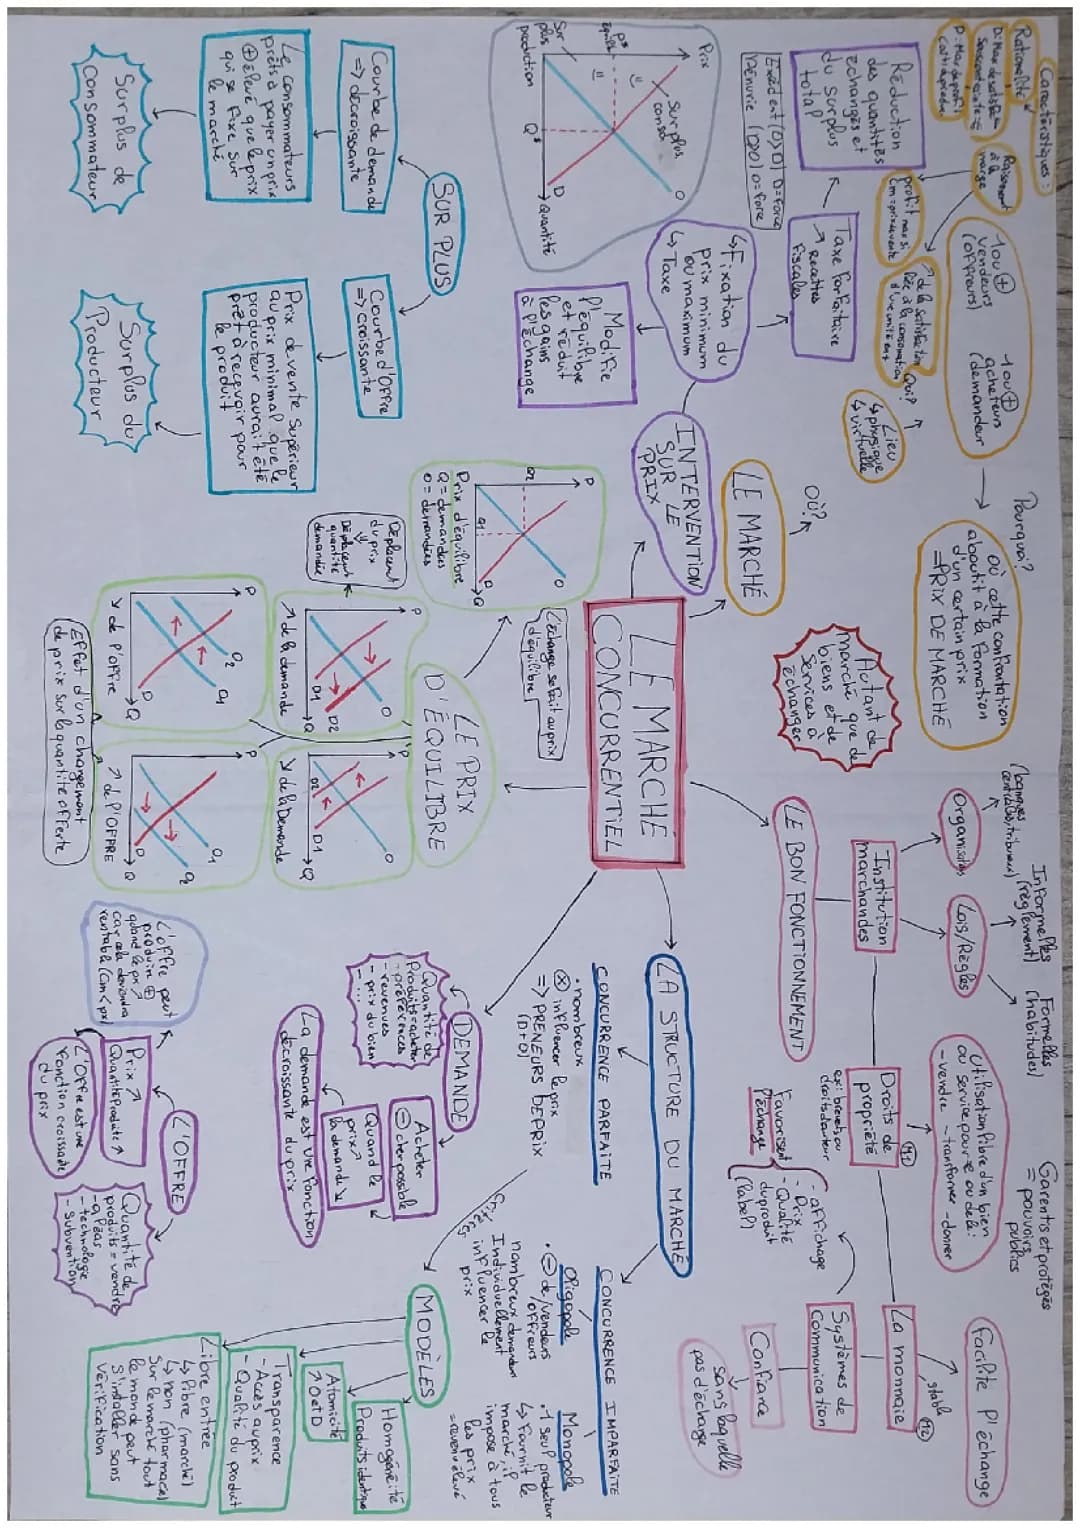 LE MARCHÉ
CONCURRENTIEL
LE MARCHÉ
OÙ?
Lieu
↳ physique
↳ virtuelle
Qui?
1 ou ⊕
vendeurs
(offreurs)
1 ou ⊕
acheteurs
(demandeur
Pourquoi?
où cette confrontation
aboutit à la formation
d'un certain prix
= PRIX DE MARCHÉ
Autant de
marché que de
biens et de
services à
échanger
Caractéristiques:
Rationalité
Raisonnement
à la
marge
profit max si
Cm = prix de vente
↗ de la satisfaction
liée à la consommation
d'une unité en +
INTERVENTION
SUR LE
PRIX
↳ Fixation du
prix minimum
ou maximum
↳ Taxe
Taxe forfaitaire
↗ recettes
fiscales
Réduction
des quantités
échangés et
du surplus
total
Modifie
l'équilibre
et réduit
les gains
à l'échange
Prix
Surplus
conso
O
P*
équili
Sur
plus
production
Q*
D
Quantité
SURPLUS
Courbe de demande
=> décroissante
Le consommateurs
prêts à payer un prix
⊕ élevé que le prix
qui se fixe sur
le marché
Surplus de
Consommateur
Courbe d'Offre
=> croissante
Prix de vente supérieur
au prix minimal que le
producteur aurait été
prêt à recevoir pour
le produit
Surplus du
Producteur
LE PRIX
D'ÉQUILIBRE
L'échange se fait au prix
d'équilibre
P
O
D
Q
Q1
Prix d'équilibre
Q = demandées
O = demandées
Déplacent
du prix
Déplacent
quantité
demandées
P
O
D1
D2
Q
↗ de la demande
P
O
D1
D2
Q
↘ de la Demande
P
O2
O1
D
Q
↘ de l'offre
P
O1
O2
D
Q
↗ de l'OFFRE
Effet d'un changement
de prix sur la quantité offerte
LE BON FONCTIONNEMENT
Institution
marchandes
Organisation
(banques
centrales, tribunaux)
Lois/Règles
Informelles
(règlement)
Formelles
(habitudes)
Droits de
propriété
M1
ex: brevets ou
droits d'auteur
Utilisation libre d'un bien
ou service pour se ou delà:
- vendre - transformer - donner
Garentis et protégés
= pouvoirs
publics
La monnaie
M2
stable
Facilite l'échange
Systèmes de
Communication
- affichage
- Prix
- Qualité
du produit
(label)
Favorisent
l'échange
Confiance
sans laquelle
pas d'échange
LA STRUCTURE DU MARCHÉ
CONCURRENCE PARFAITE
• nombreux
⊗ influencer le prix
=> PRENEURS DE PRIX
(D+O)
CONCURRENCE IMPARFAITE
Oligopole
• ⊖ de/vendeurs
offreurs
nombreux demandeur
Individuellement
influencer le
prix
Monopole
• 1 seul producteur
↳ Fournit le
marché, il
impose à tous
les prix
= revenu élevé
DEMANDE
Quantité de
Produits = acheter
- préférences
- revenues
- prix du bien
- ...
Acheter
⊖ cher possible
Quand le
prix ↗
la demande ↘
La demande est une fonction
décroissante du prix
L'OFFRE
Prix ↗
Quantité produite ↗
L'offre peut
produire ⊕
quand le prix ↗
car cela deviendra
rentable (Cm < px)
L'offre est une
fonction croissante
du prix
Quantité de
produits = vendre
- aléas
- technologie
- subvention
MODÈLES
Homogénéité
Produits identique
Atomicité
↗ O et D
Transparence
- Accès au prix
- Qualité du produit
Libre entrée
↳ libre (marché)
↳ non (pharmacie)
sur le marché tout
le monde peut
s'installer sans
vérification